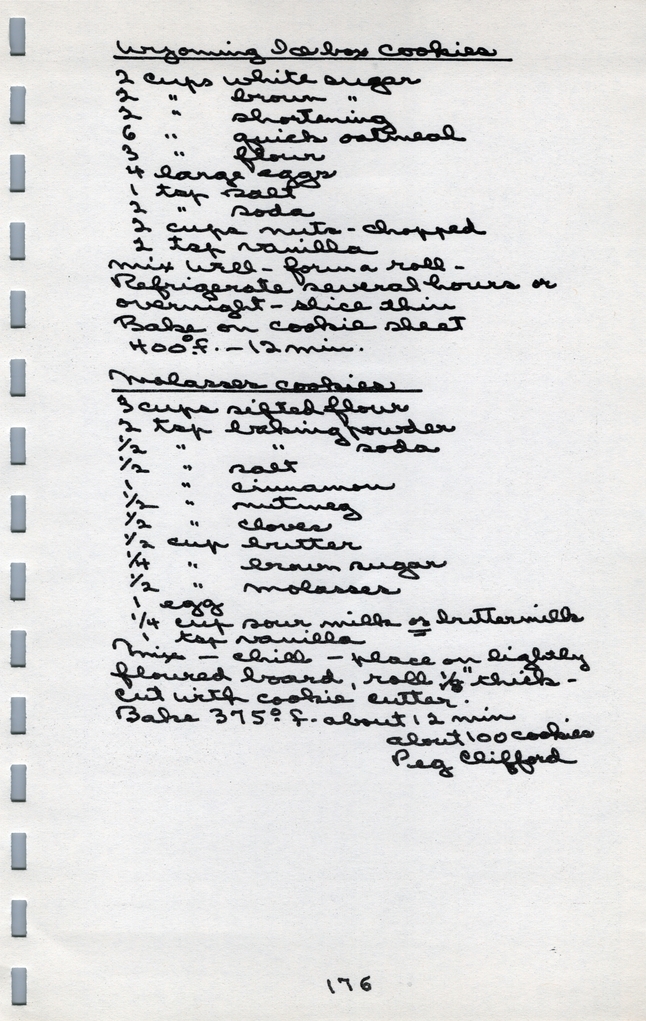 Wyoming Icebox Cookies
2 cups white sugar
2 " brown "
2 " shortening
6 " quick oatmeal
3 " flour
4 large eggs
1 tsp salt
2 " soda
2 cups nuts - chopped
2 tsp vanilla
Mix well - form a roll -
Refrigerate several hours or
overnight - slice thin
Bake on cookie sheet
400° f. - 12 min.
Molasses cookies
3 cups sifted flour
2 tsp baking powder
1/2 " " soda
1/2 " salt
1 " cinnamon
1/2 " nutmeg
1/2 " cloves
1/2 cup butter
1/4 " brown sugar
1/2 " molasses
1 egg
1/4 cup sour milk or buttermilk
1 tsp vanilla
Mix - chill - place on lightly
floured board, roll 1/8" thick -
cut with cookie cutter.
Bake 375° f. about 12 min
about 100 cookies
Peg Clifford
176